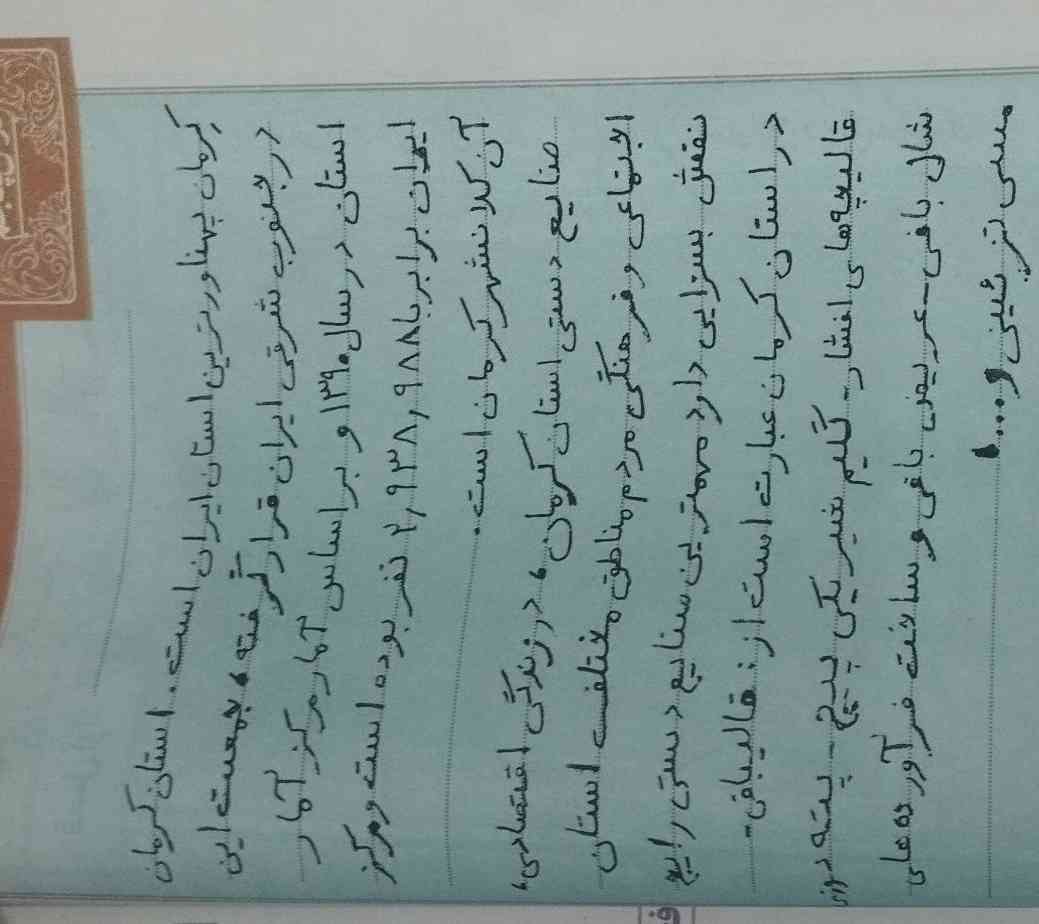 کرمان پهناورترین استان ایران است. استان کرمان
در جنوب شرقی ایران قرار گرفته و جمعیت این
استان در سال ۱۳۹۰ و بر اساس آمار مرکز آمار
ایران برابر با ۲,۹۳۸,۹۸۸ نفر بوده است و مرکز
آن کلانشهر کرمان است.
صنایع دستی استان کرمان، در زندگی اقتصادی،
اجتماعی و فرهنگی مردم مناطق مختلف استان
نقش بسزایی دارد مهمترین صنایع دستی رایج
در استان کرمان عبارت است از: قالیبافی-
قالیچه های افشار- گلیم شیریکی پیچ- پته دوزی
شال بافی- عریض بافی و ساخت فرآورده های
مسی تزئینی و...!